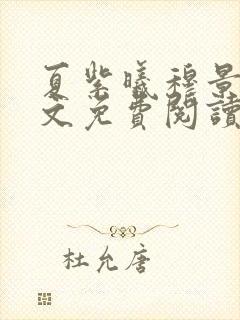 夏紫曦穆景
文免費閱讀
杜允唐